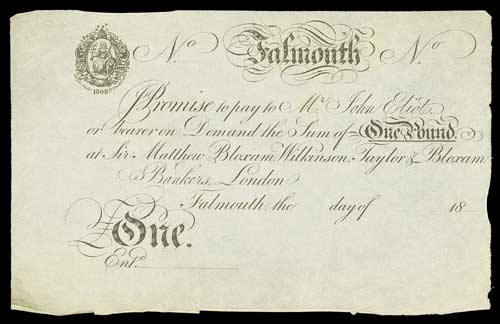 No. Falmouth No.
1808
I Promise to pay to Mr. John Eliot
or bearer on Demand the Sum of One Pound,
at Sir Matthew Bloxam, Wilkinson, Taylor & Bloxam
Bankers, London
Falmouth, the day of 18
£One.
Entd.